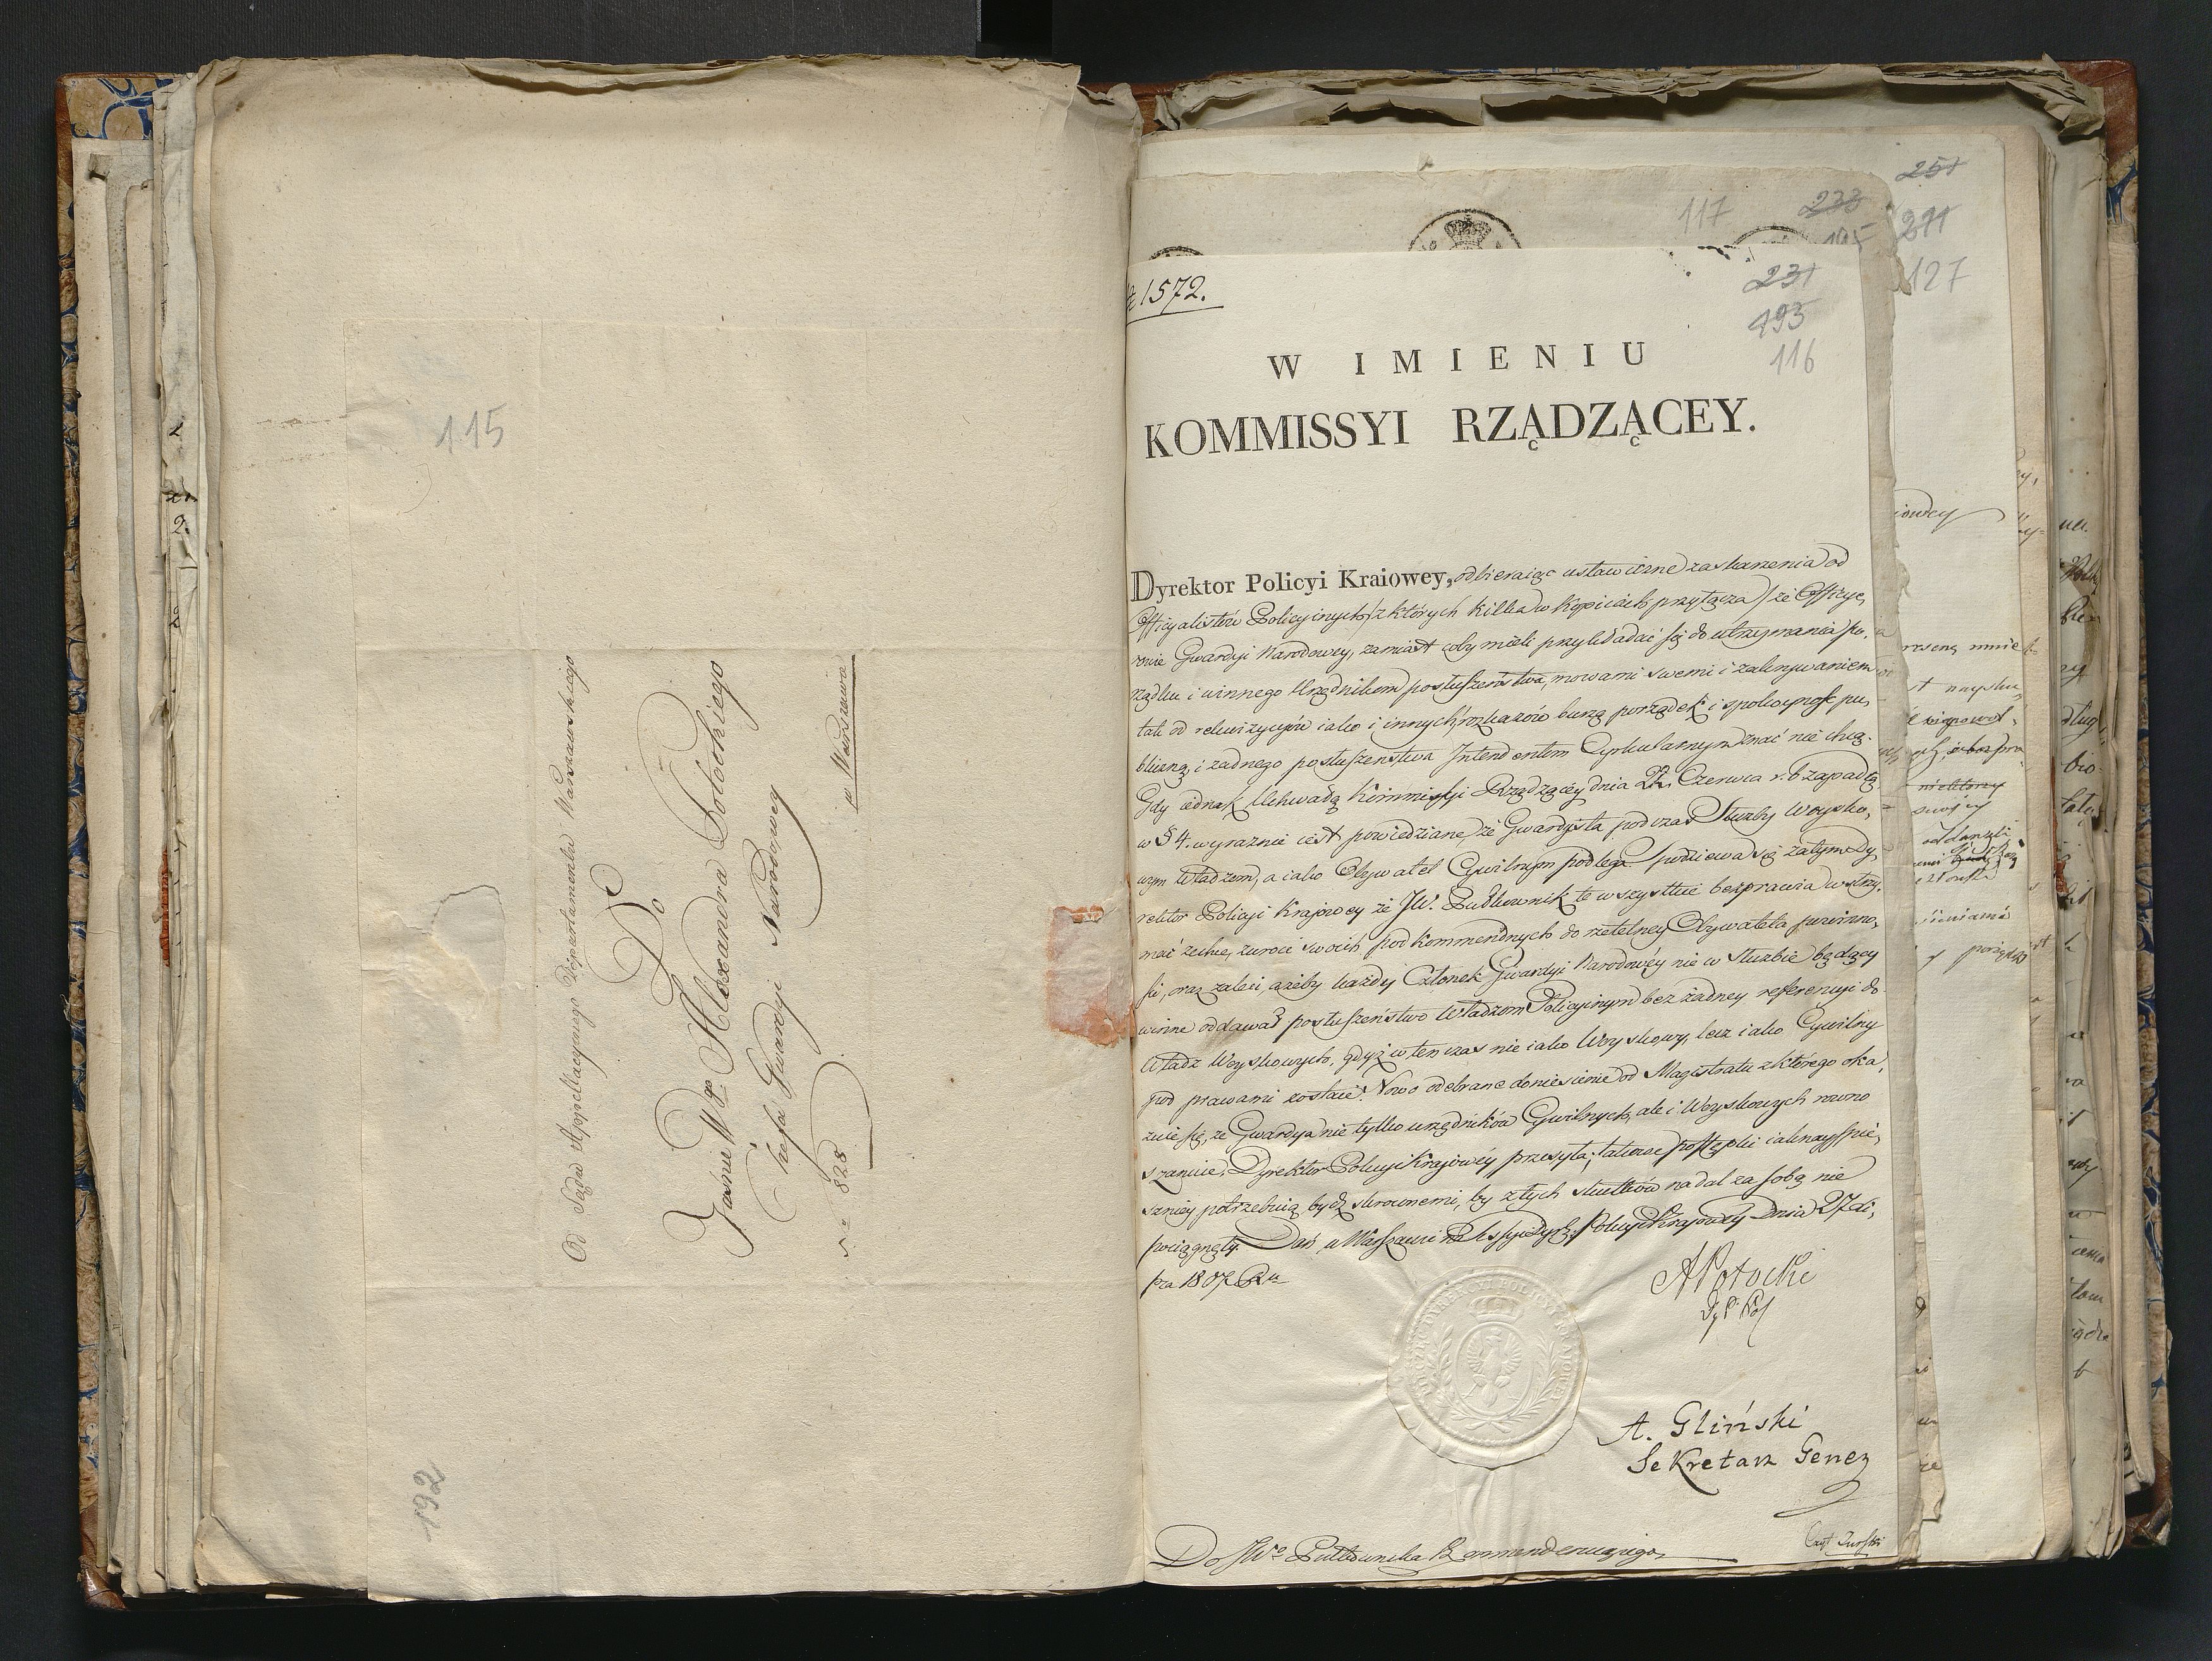 115
Od Sądu Appellacyjnego Departamentu Warszawskiego
Do
Jaśnie Wgo Alexandra Potockiego
Szefa Gwardyi Narodowey
w Warszawie
No 828
192
251
211
127
117
233
195
No 1572.
231
193
116
W IMIENIU
KOMMISSYI RZĄDZĄCEY.
Dyrektor Policyi Kraiowey, odbieraiąc ustawiczne zaskarzenia od
Officyalistów Policyinych /z których kilka w Kopiiach przyłącza/ że Officye,
rowie Gwardyi Narodowey, zamiast coby mieli przykładać się do utrzymania po,
rządku i winnego Urzędnikom posłuszeństwa, mowami swemi i zakazywaniem
tak od rekwizycyów iako i innych rozkazów burzą porządek i spokoyność pu,
bliczną, i żadnego posłuszeństwa Intendentom Cyrkularnym znać nie chcą.
Gdy iednak Uchwałą Kommissyi Rządzącey dnia 22. Czerwca r. b. zapadłą
w § 4. wyraznie iest powiedziane, że Gwardysta podczas Służby Woysko,
wym Władzom, a iako Obywatel Cywilnym podlega spodziewa się zatym Dy,
rektor Policyi Krajowey że JW. Pułkownik te wszystkie bezprawia wstrzy,
mać zechce, zwroci swoich podkommendnych do rzetelney Obywatela powinno,
ści, oraz zaleci, ażeby każdy Członek Gwardyi Narodowéy nie w służbie będący
winne oddawał posłuszeństwo Władzom Policyinym bez żadney referencyi do
Władz Woyskowych, gdyż wtenczas nie iako Woyskowy, lecz iako Cywilny
pod prawami zostaie. Nowo odebrane doniesienie od Magistratu z którego oka,
zuie się, że Gwardya nie tylko urzędników Cywilnych, ale i Woyskowych rowno
szanuie, Dyrektor Policyi Krajowéy przesyła; takowe postępki iaknayspie,
szniey potrzebuią bydź skromnemi, by złych skutków nadal za sobą nie
pociągnęły. Dań w Warszawie na Sessyi Dyrek: Policyi Krajowéy Dnia 27 Li,
pca 1807 Rku
APotocki
Dyr Pol
A. Gliński
Sekretarz Gener
Do JWo Pułkownika Kommenderuiącego